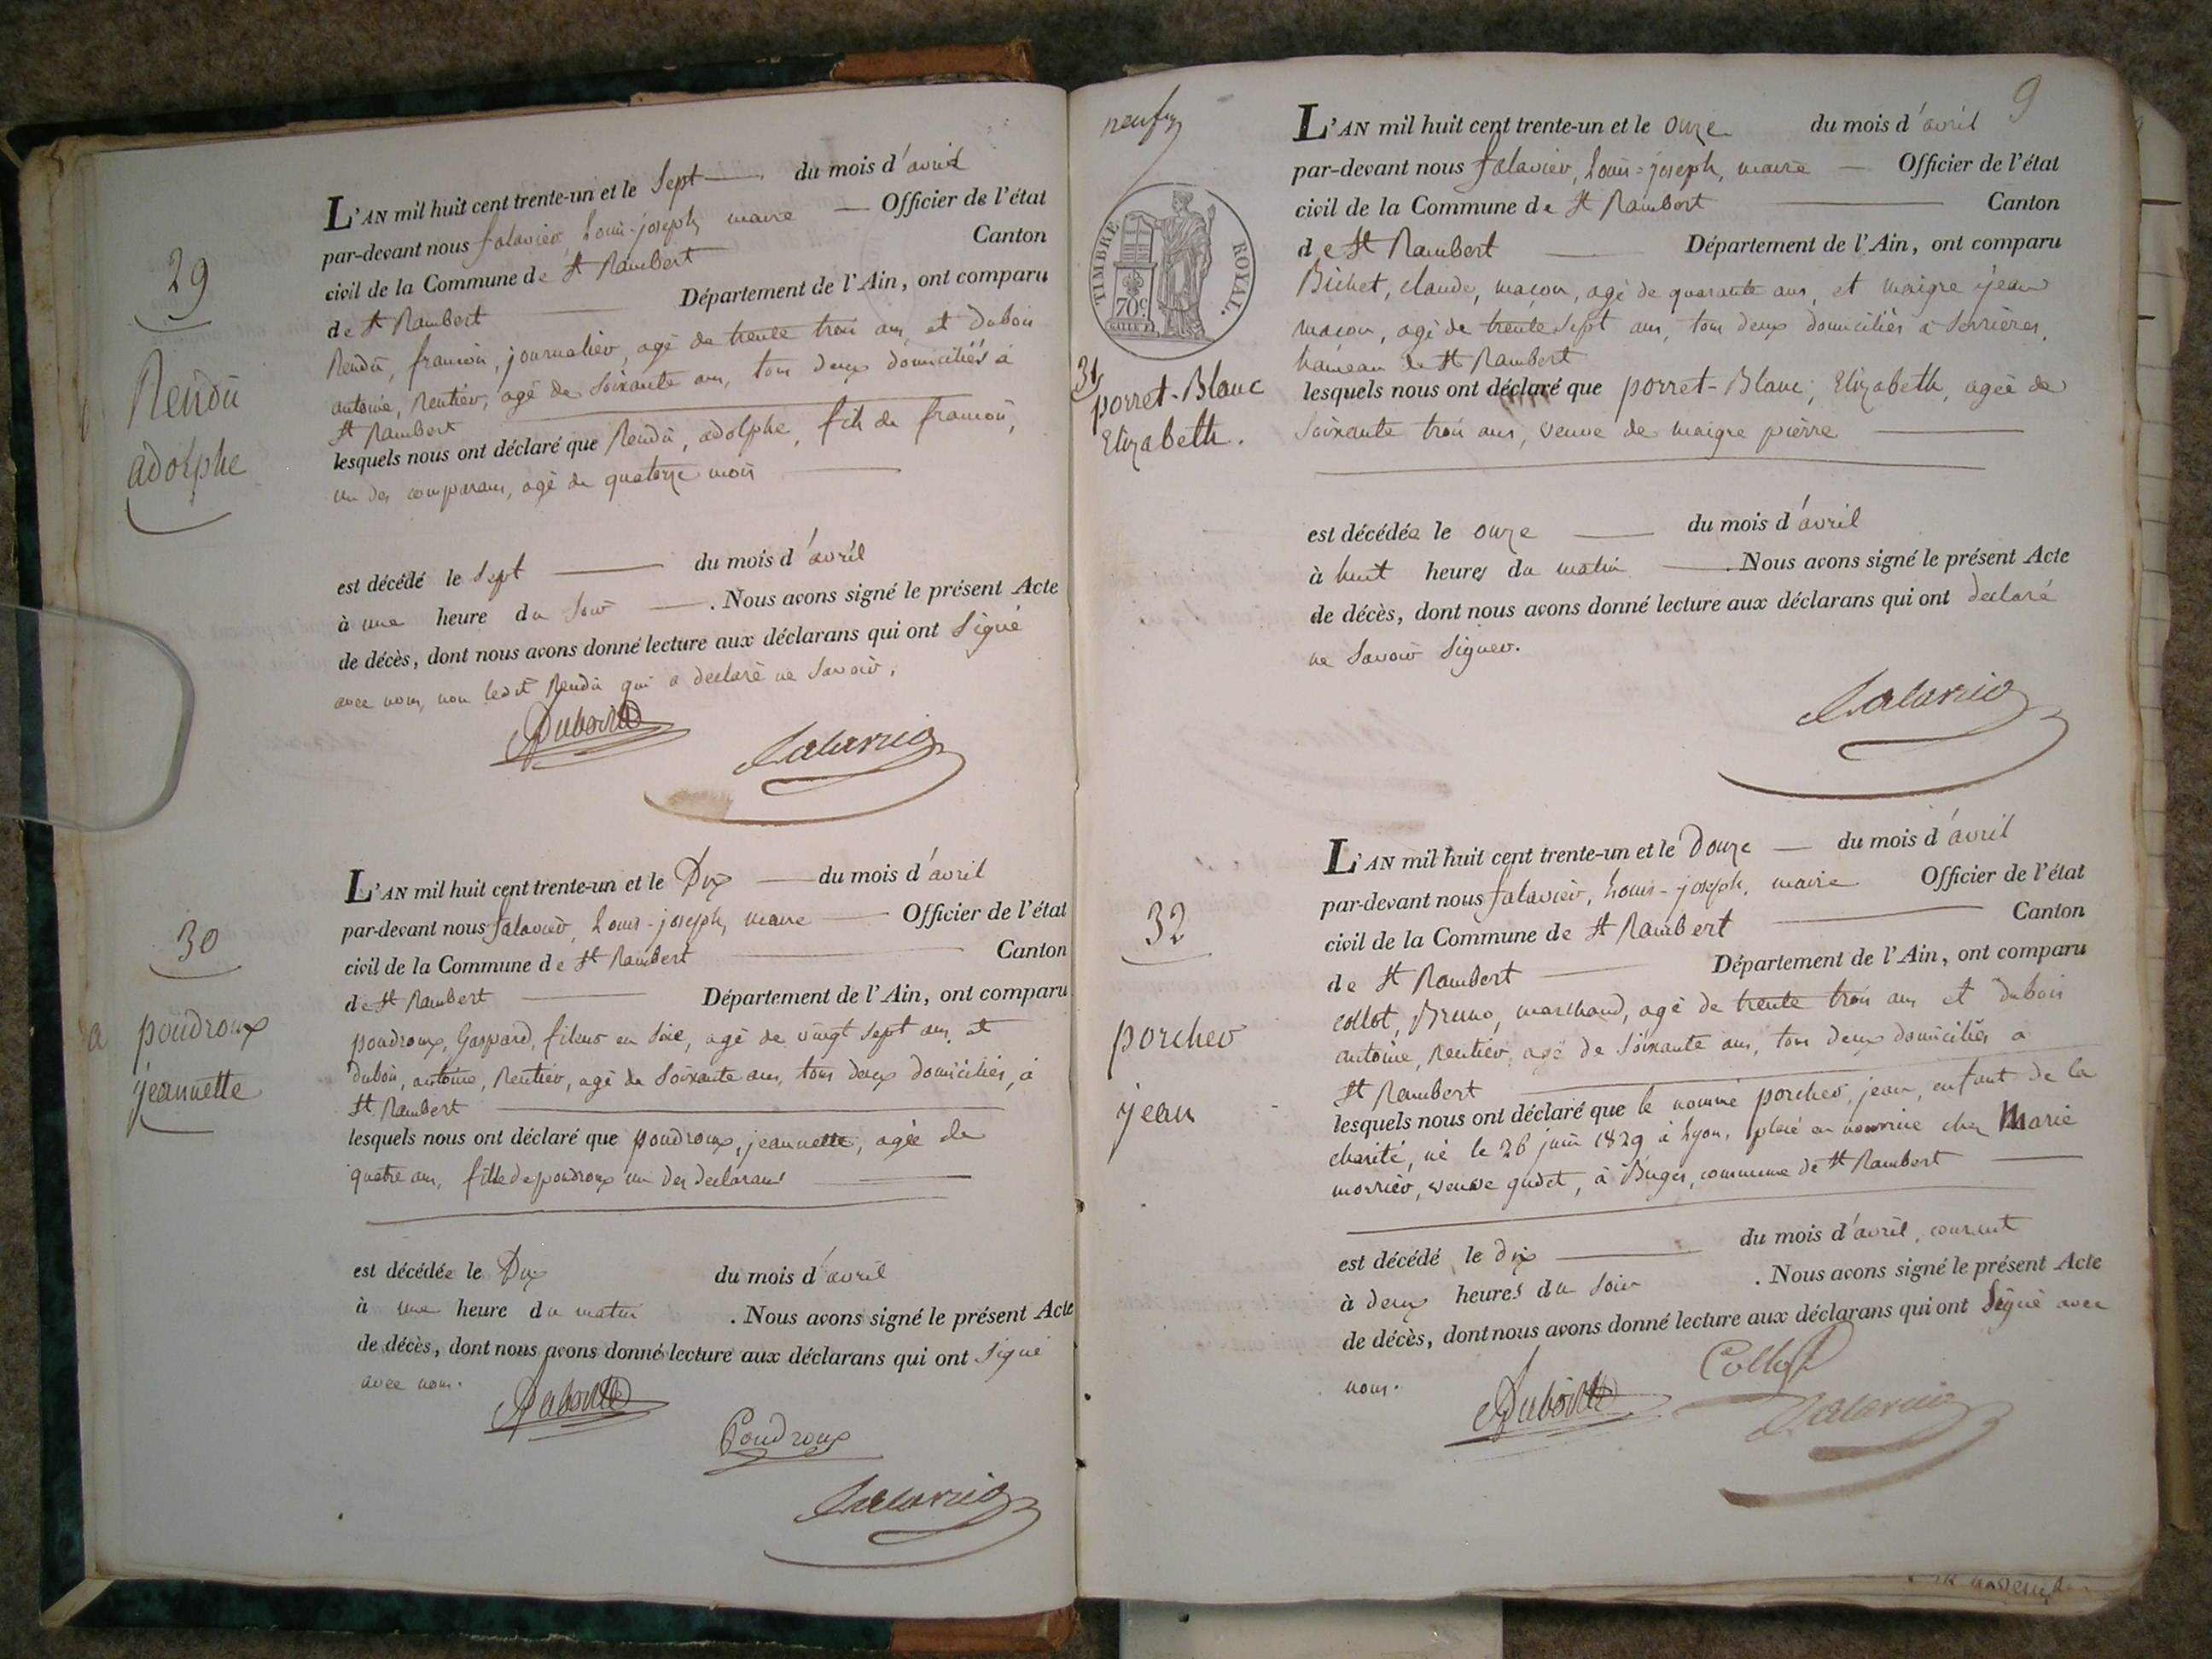 29
Rendu
adolphe
L'AN mil huit cent trente-un et le sept du mois d'avril
par-devant nous falavier, Louis-joseph, maire Officier de l'état
civil de la Commune de St Rambert Canton
de St Rambert Département de l'Ain, ont comparu
Rendu, francois, journalier, agé de trente trois ans, et Dubois
antoine, Rentier, agé de soixante ans, tous deux domiciliés à
St Rambert
lesquels nous ont déclaré que Rendu, adolphe, fils de francois,
un des comparans, agé de quatorze mois
est décédé le sept du mois d'avril
à une heure du soir . Nous avons signé le présent Acte
de décès, dont nous avons donné lecture aux déclarans qui ont signé
avec nous, non ledit Rendu qui a declaré ne savoir.
30
a poudroux
jeannette
L'AN mil huit cent trente-un et le Dix du mois d'avril
par-devant nous falavier, Louis-joseph, maire Officier de l'état
civil de la Commune de St Rambert Canton
de St Rambert Département de l'Ain, ont comparu
poudroux, Gaspard, fileur en soie, agé de vingt sept ans, et
Dubois, antoine, Rentier, agé de soixante ans, tous deux domiciliés, à
St Rambert
lesquels nous ont déclaré que poudroux, jeannette, agée de
quatre ans, fille de poudroux un des declarans
est décédée le Dix du mois d'avril
à une heure du matin . Nous avons signé le présent Acte
de décès, dont nous avons donné lecture aux déclarans qui ont signé
avec nous.
Poudroux
9
neuf
TIMBRE ROYAL.
70c
31
porret-Blanc
Elizabeth.
L'AN mil huit cent trente-un et le onze du mois d'avril
par-devant nous falavier, Louis-joseph, maire Officier de l'état
civil de la Commune de St Rambert Canton
de St Rambert Département de l'Ain, ont comparu
Bichet, claude, maçon, agé de quarante ans, et maigre jean
maçon, agé de trente sept ans, tous deux domiciliés à serrières,
hameau de St Rambert
lesquels nous ont déclaré que porret-Blanc, Elizabeth, agée de
soixante trois ans, veuve de maigre pierre
est décédée le onze du mois d'avril
à huit heures du matin . Nous avons signé le présent Acte
de décès, dont nous avons donné lecture aux déclarans qui ont declaré
ne savoir signer.
32
porcher
jean
L'AN mil huit cent trente-un et le Douze du mois d'avril
par-devant nous falavier, Louis-joseph, maire Officier de l'état
civil de la Commune de St Rambert Canton
de St Rambert Département de l'Ain, ont comparu
collot, Bruno, marchand, agé de trente trois ans et Dubois
antoine, Rentier, agé de soixante ans, tous deux domiciliés a
St Rambert
lesquels nous ont déclaré que le nommé porcher, jean, enfant de la
charité, né le 26 juin 1829 à Lyon, placé en nourrice chez Marie
morrier, veuve gudet, à Buges, commune de St Rambert
est décédé le dix du mois d'avril, courant
à deux heures du soir . Nous avons signé le présent Acte
de décès, dont nous avons donné lecture aux déclarans qui ont signé avec
nous.
Collot